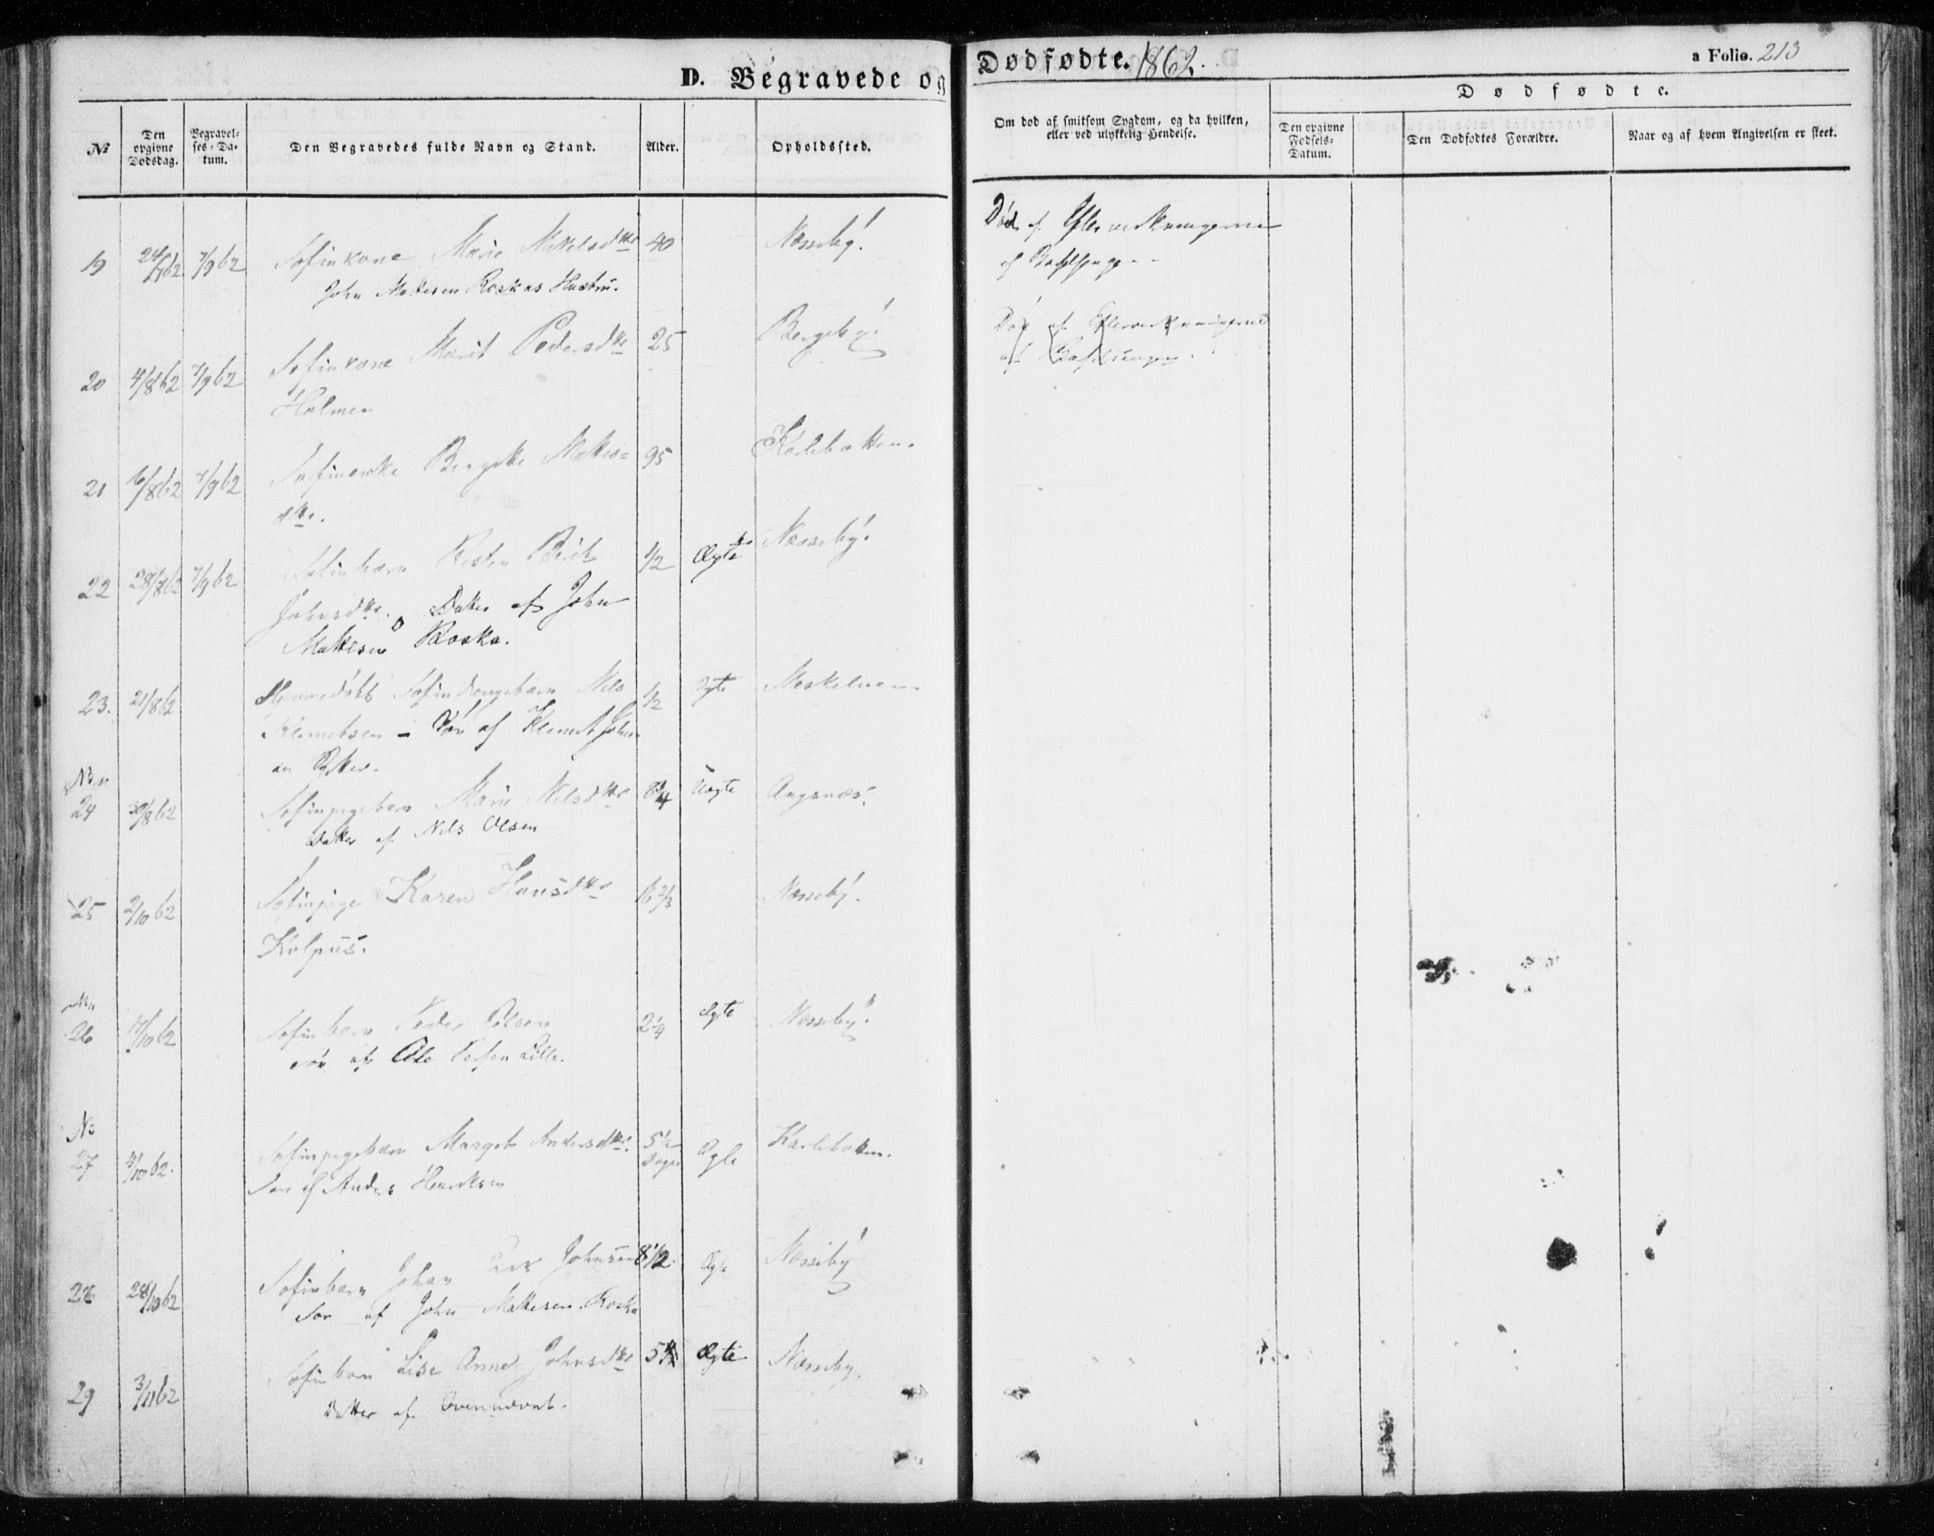 D. Begravede og Dødfødte. 1862.
a Folio. 213
Dødfødte.
No
Den opgivne Dødsdag.
Begravelses-Datum.
Den Begravedes fulde Navn og Stand.
Alder.
Opholdssted.
Om død af smitsom Sygdom, og da hvilken, eller ved ulykkelig Hendelse.
Den opgivne Fødsels-Datum.
Den Dødfødtes Forældre.
Naar og af hvem Angivelsen er skeet.
19 24/7 62 7/9 62 Søfinkone Marie Mikelsdtr 40 Næsseby. Død af Efterveerkningerne
John Mathisen Roskas Hustru. af Barselseng
20 4/8 62 7/9 62 Søfinkone Marit Pedersdtr 25 Bergeby. Død af Efterverkningerne
Holmen af Barselsengen.
21 6/8 62 7/9 62 Søfinenke Bergitte Mathis= 95 Karlebotten.
dtr.
22 28/8 62 7/9 62 Søfinbarn Kirsten Berit 1/2 Ægte Næsseby.
Johnsdtr. Datter af John
Mathisen Roska.
23. 21/8 62 Hjemmedøbt Søfindrengebarn Nils 1/2 Ægte Meskelven
Klemetsen - Søn af Klemet John
24 30/8 62 Søfinpigebarn Marie Nilsdtr 8 3/4 Uægte Angsnæs.
Datter af Nils Olsen
25 2/10 62 Søfinpige Karen Hansdtr 16 2/3 Næsseby.
Kolpus.
26 14/10 62 Søfinbarn Peder Olsen 2 1/4 Ægte Næsseby.
Søn af Ole Persen Lille.
No
27 /10 62. Søfinpigebarn Marget Andersdtr. 5 1/2 Dage Ægte Karlebotten.
Søn af Anders Henriksen
28 28/10 62 Søfinbarn Johan Johnsen 8 1/2. Ægte Næsseby
Søn af John Mathisen Roska
29 3/11 62 Søfinbarn Lise Anne Johnsdtr 5 Ægte Næsseby.
Datter af Ovennævnt.